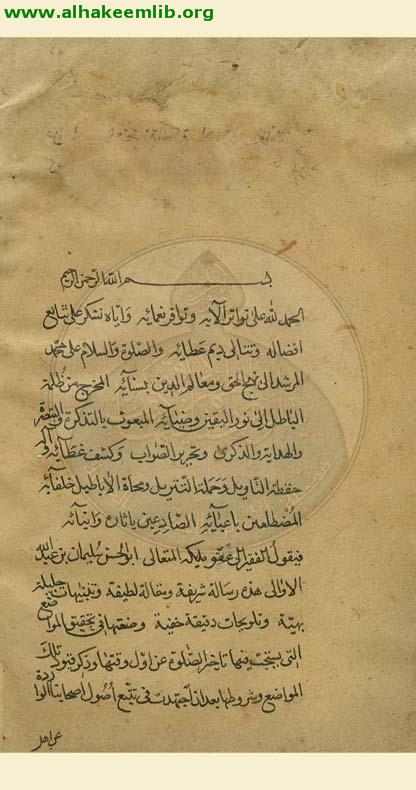 www.alhakeemlib.org
بسم الله الرحمن الرحيم
الحمد لله على تواتر آلائه وتوافر نعمائه واياه نشكر على تتابع
افضاله وتتالى ديم عطائه والصلوة والسلام على محمد
المرشد الى نهج الحق ومعالم الدين بسنائه المخرج من ظلمة
الباطل الى نور اليقين وضيائه المبعوث بالتذكرة والتبصرة
والهداية والذكرى وتحرير الصواب وكشف غطائه وآله
حفظة التأويل وحملة التنزيل ومحاة الاباطيل خلفائه
المضطلعين باعبائه الصادعين باثاره وانبائه
فيقول الفقير الى عفو مليكه المتعالى ابو الحسن سليمان بن عبد الله
الاوالى هذه رسالة شريفة ومقالة لطيفة وتنبيهات جليلة
بهية وتلويحات دقيقة خفية وضعتها فى تحقيق المواضع
التى يستحب فيها تاخير الصلوة عن اول وقتها وذكر قيود تلك
المواضع وشروطها بعد ان اجتهدت فى تتبع اصول اصحابنا الواردة
عن اهل